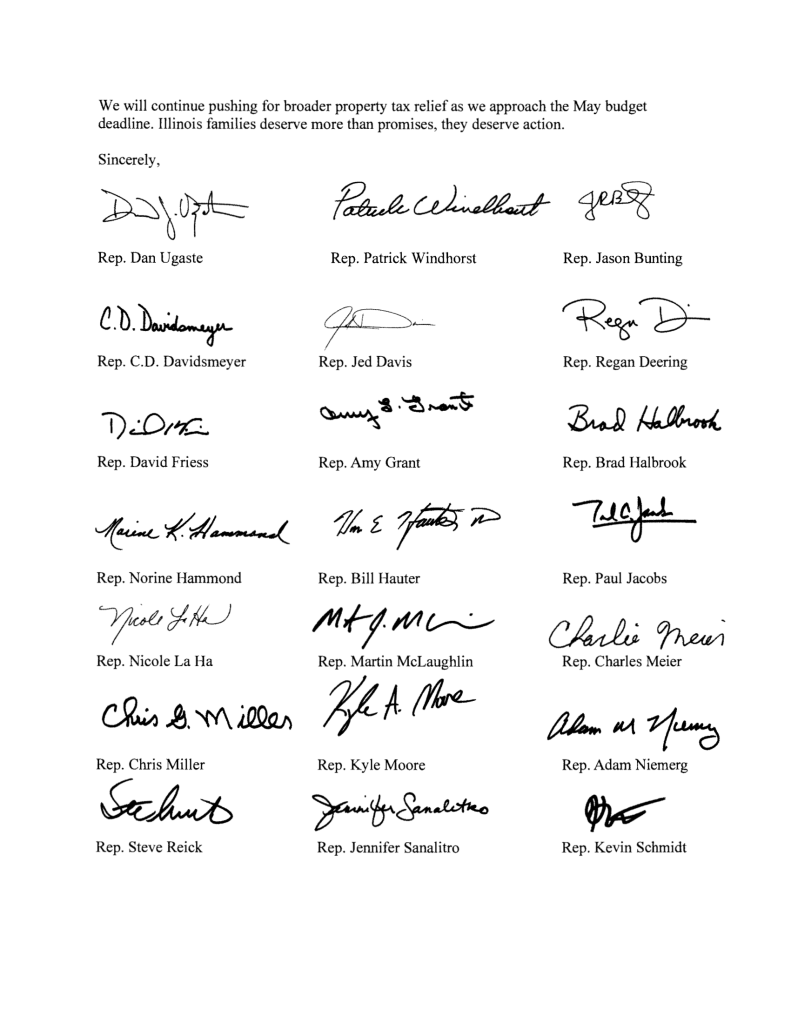 We will continue pushing for broader property tax relief as we approach the May budget
deadline. Illinois families deserve more than promises, they deserve action.
Sincerely,
Rep. Dan Ugaste Rep. Patrick Windhorst Rep. Jason Bunting
C.D. Davidsmeyer
Rep. C.D. Davidsmeyer Rep. Jed Davis Rep. Regan Deering
Amy L. Grant Brad Halbrook
Rep. David Friess Rep. Amy Grant Rep. Brad Halbrook
Norine K. Hammond
Rep. Norine Hammond Rep. Bill Hauter Rep. Paul Jacobs
Nicole La Ha Charlie Meier
Rep. Nicole La Ha Rep. Martin McLaughlin Rep. Charles Meier
Chris G. Miller Kyle A. Moore
Rep. Chris Miller Rep. Kyle Moore Rep. Adam Niemerg
Jennifer Sanalitro
Rep. Steve Reick Rep. Jennifer Sanalitro Rep. Kevin Schmidt